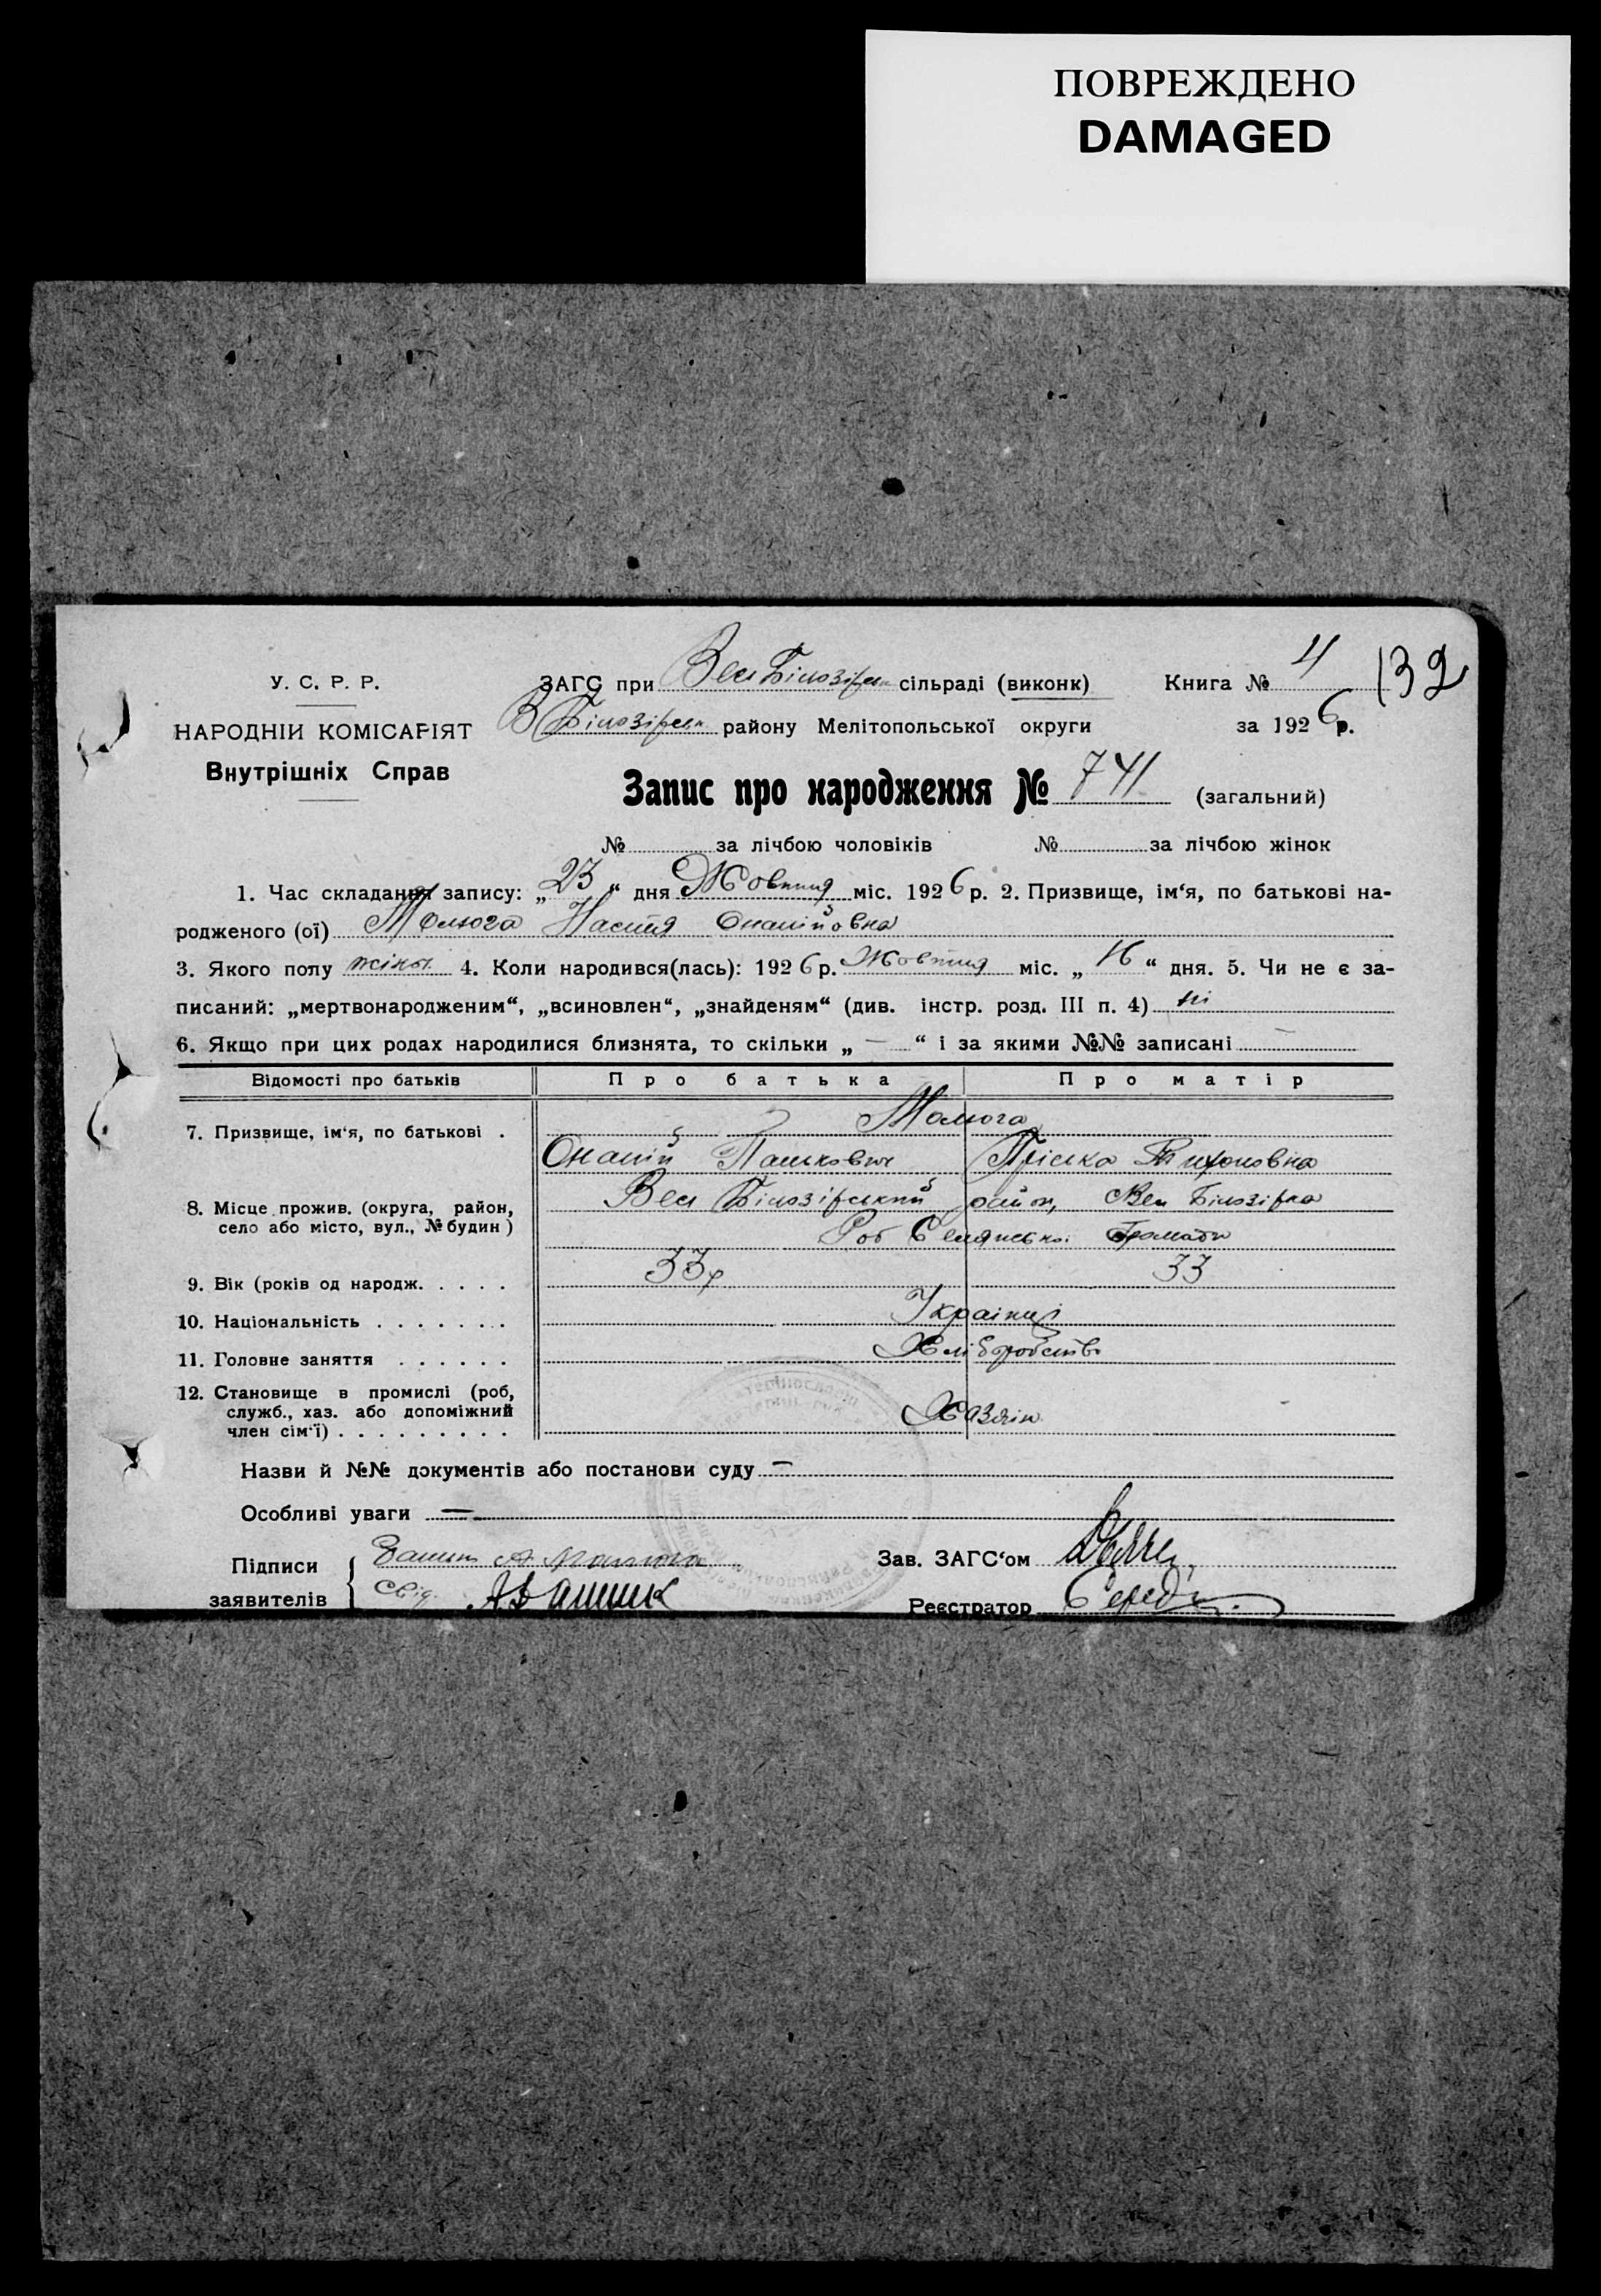 ПОВРЕЖДЕНО
DAMAGED
У. С. Р. Р.
НАРОДНІЙ КОМІСАРІЯТ
Внутрішніх Справ
ЗАГС при Вел Білозірськ сільраді (виконк)
Книга № 4 132
В Білозірськ району Мелітопольської округи
за 1926 р.
Запис про народження № 741 (загальний)
№ за лічбою чоловіків № за лічбою жінок
1. Час складання запису: „23“ дня Жовтня міс. 1926 р. 2. Призвище, ім‘я, по батькові на-
родженого (ої) Малюга Настя Онапійовна
3. Якого полу жіноч. 4. Коли народився(лась): 1926 р. Жовтня міс. „16“ дня. 5. Чи не є за-
писаний: „мертвонародженим“, „всиновлен“, „знайденям“ (див. інстр. розд. III п. 4) ні
6. Якщо при цих родах народилися близнята, то скільки „ — “ і за якими №№ записані —
Відомості про батьків Про батька Про матір
7. Призвище, ім‘я, по батькові . Малюга
Онапій Панькович Пріська Тихоновна
8. Місце прожив. (округа, район, село або місто, вул., № будин) Вел Білозірський район, Вел Білозірка
Роб Селянської Громади
9. Вік (років од народж. . . . . 33р 33
10. Національність . . . . . . . Українці
11. Головне заняття . . . . . . Хліборобство
12. Становище в промислі (роб, служб., хаз. або допоміжний член сім‘ї) . . . . . . . . . Хазяін
Назви й №№ документів або постанови суду —
Особливі уваги —
Підписи
заявителів
Малюга
Свід.
Зав. ЗАГС‘ом
Реєстратор